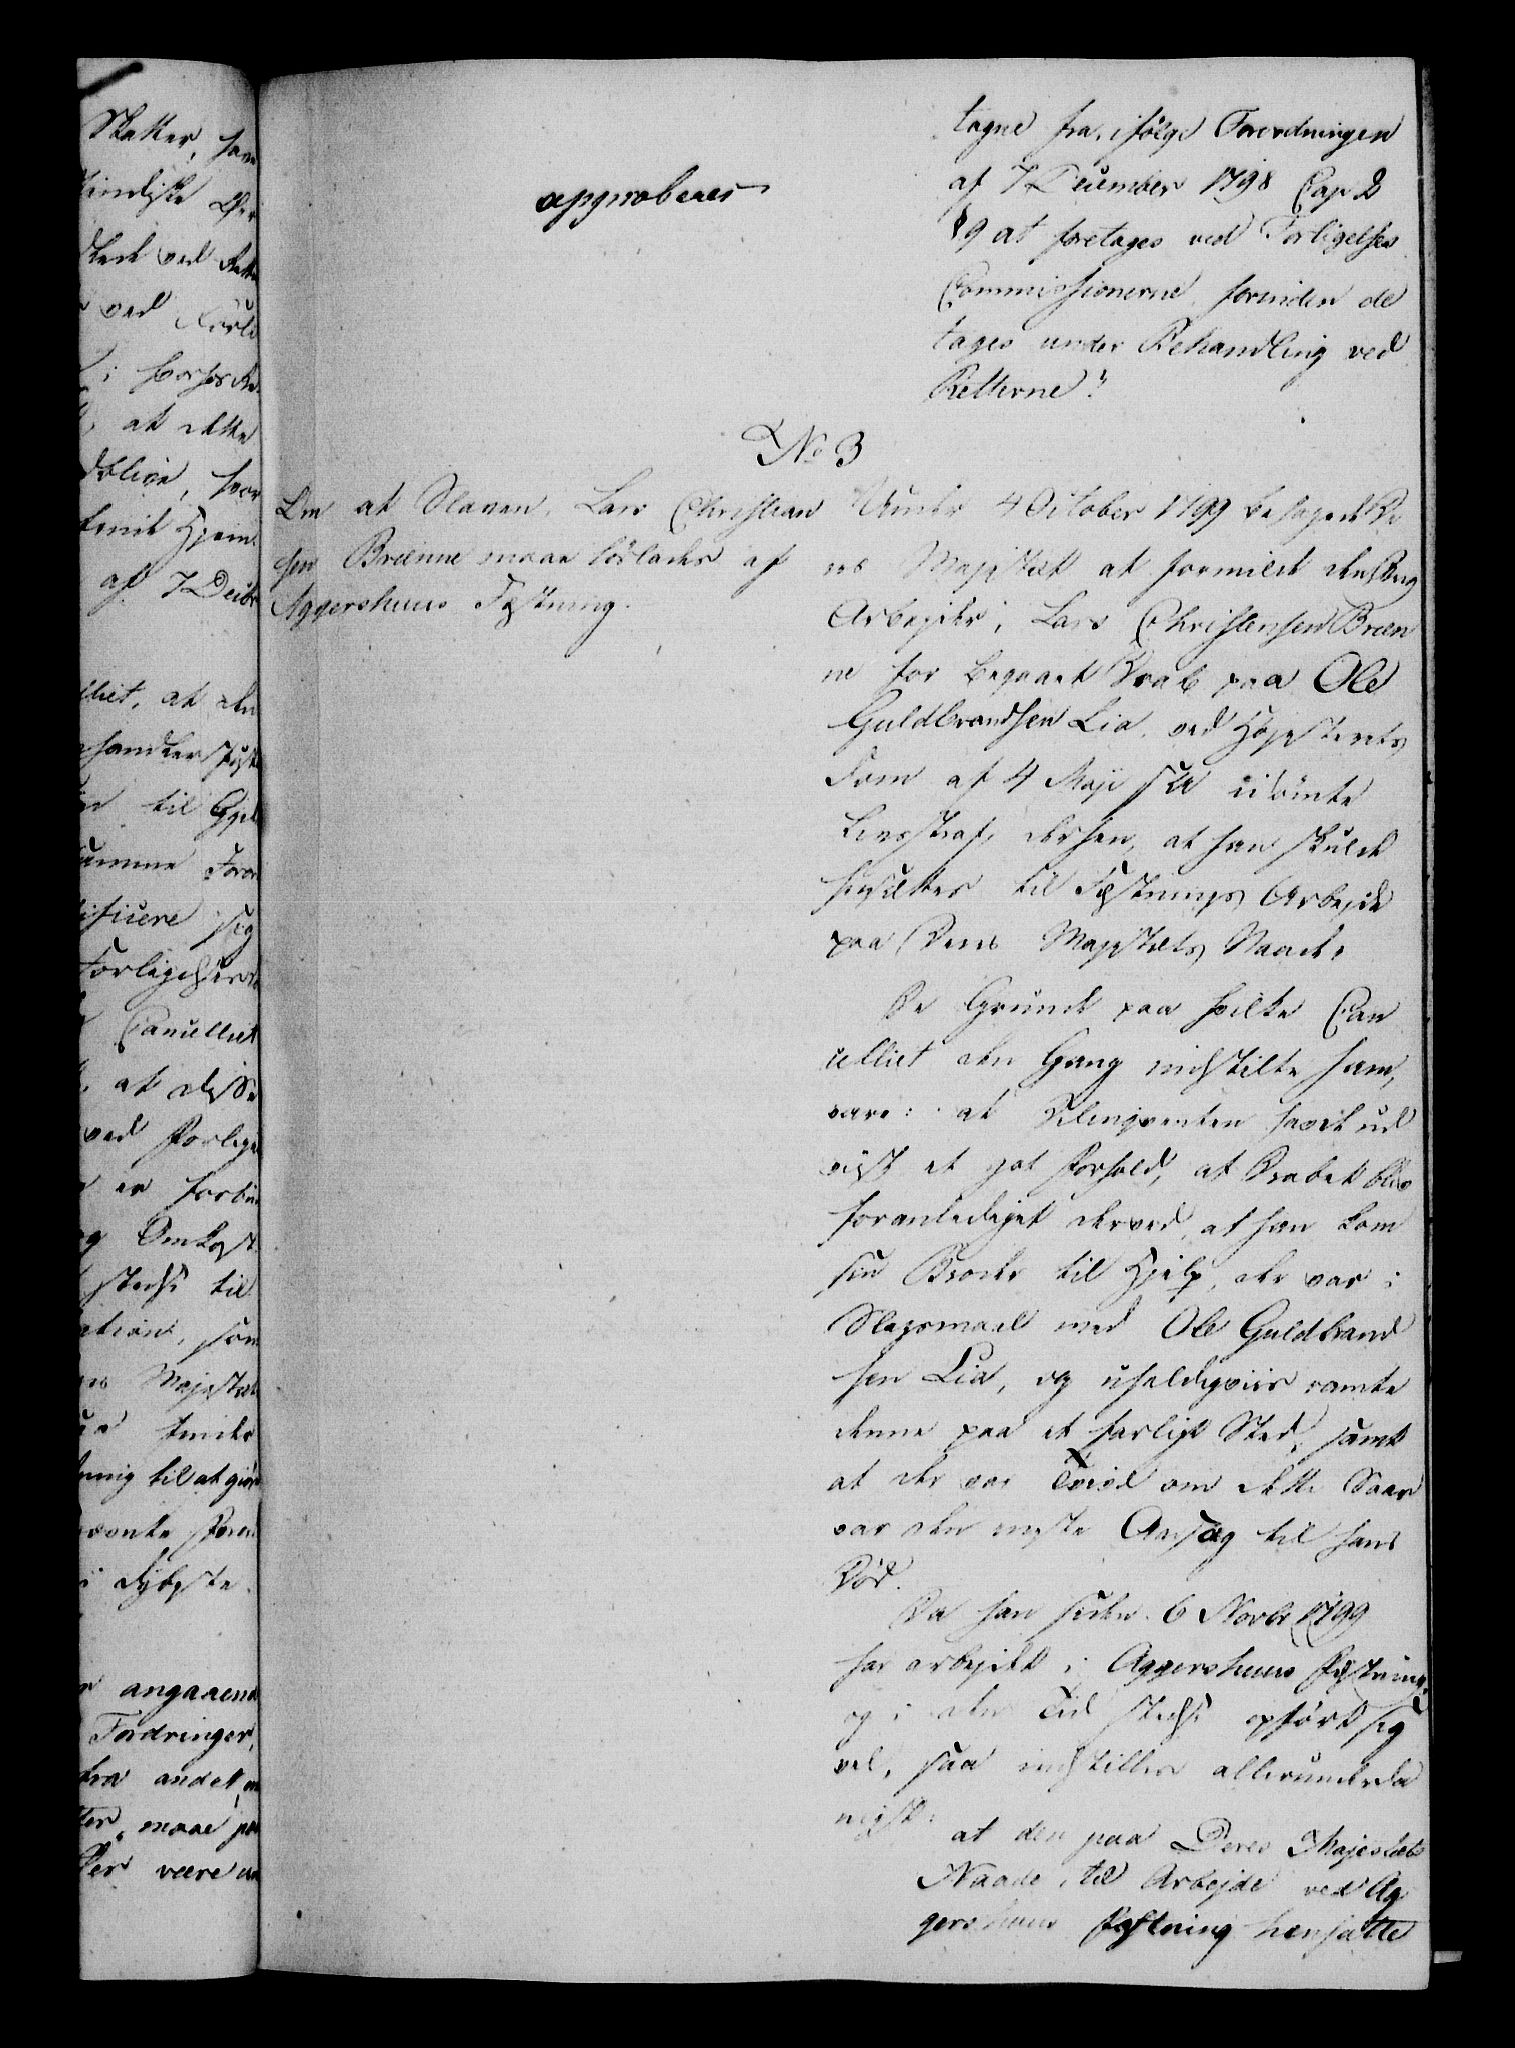 tagne fra, ifölge Forordningen
af 7 December 1798 Cap 2
§ 9 at foretages ved Forligelses
Commissionerne, forinden de
tages under Behandling ved
Retterne."
approberes
No 3
Om at Slaven, Lars Christian
sen Brænne maae löslades af
Aggershuus Fæstning.
Under 4 October 1799 behagede De
res Majestæt at formilde den Slag
Arbejder, Lars Christensen Bræn
ne for begaaet Drab paa Ole
Guldbrandsen Lia, ved Højesterets
Dom af 4 Maji s: A: idömte
Livsstraf, derhen, at han skulde
hensættes til Fæstnings Arbejde
paa Deres Majestæts Naade.
De Grunde paa hvilke Can
celliet den Gang indstilte ham,
vare: at Delinqventen havde ud
viist et got Forhold, at Drabet blev
foranlediget derved, at han kom
sin Broder til Hjelp, der var i
Slagsmaal med Ole Guldbrand
sen Lia, og uheldigviis ramte
denne paa et farligt Sted, samt
at der var Tvivl om dette Saar
var den eneste Aarsag til hans
Död.
Da han siden 6 Novbr 1799
har arbejdet i Aggershuus Fæstning,
og i den Tid stedse opfört sig
vel, saa indstilles allerunderda
nigst:
at den paa Deres Majestæts
Naade, til Arbejde ved Ag
gershuus Fæstning hensatte